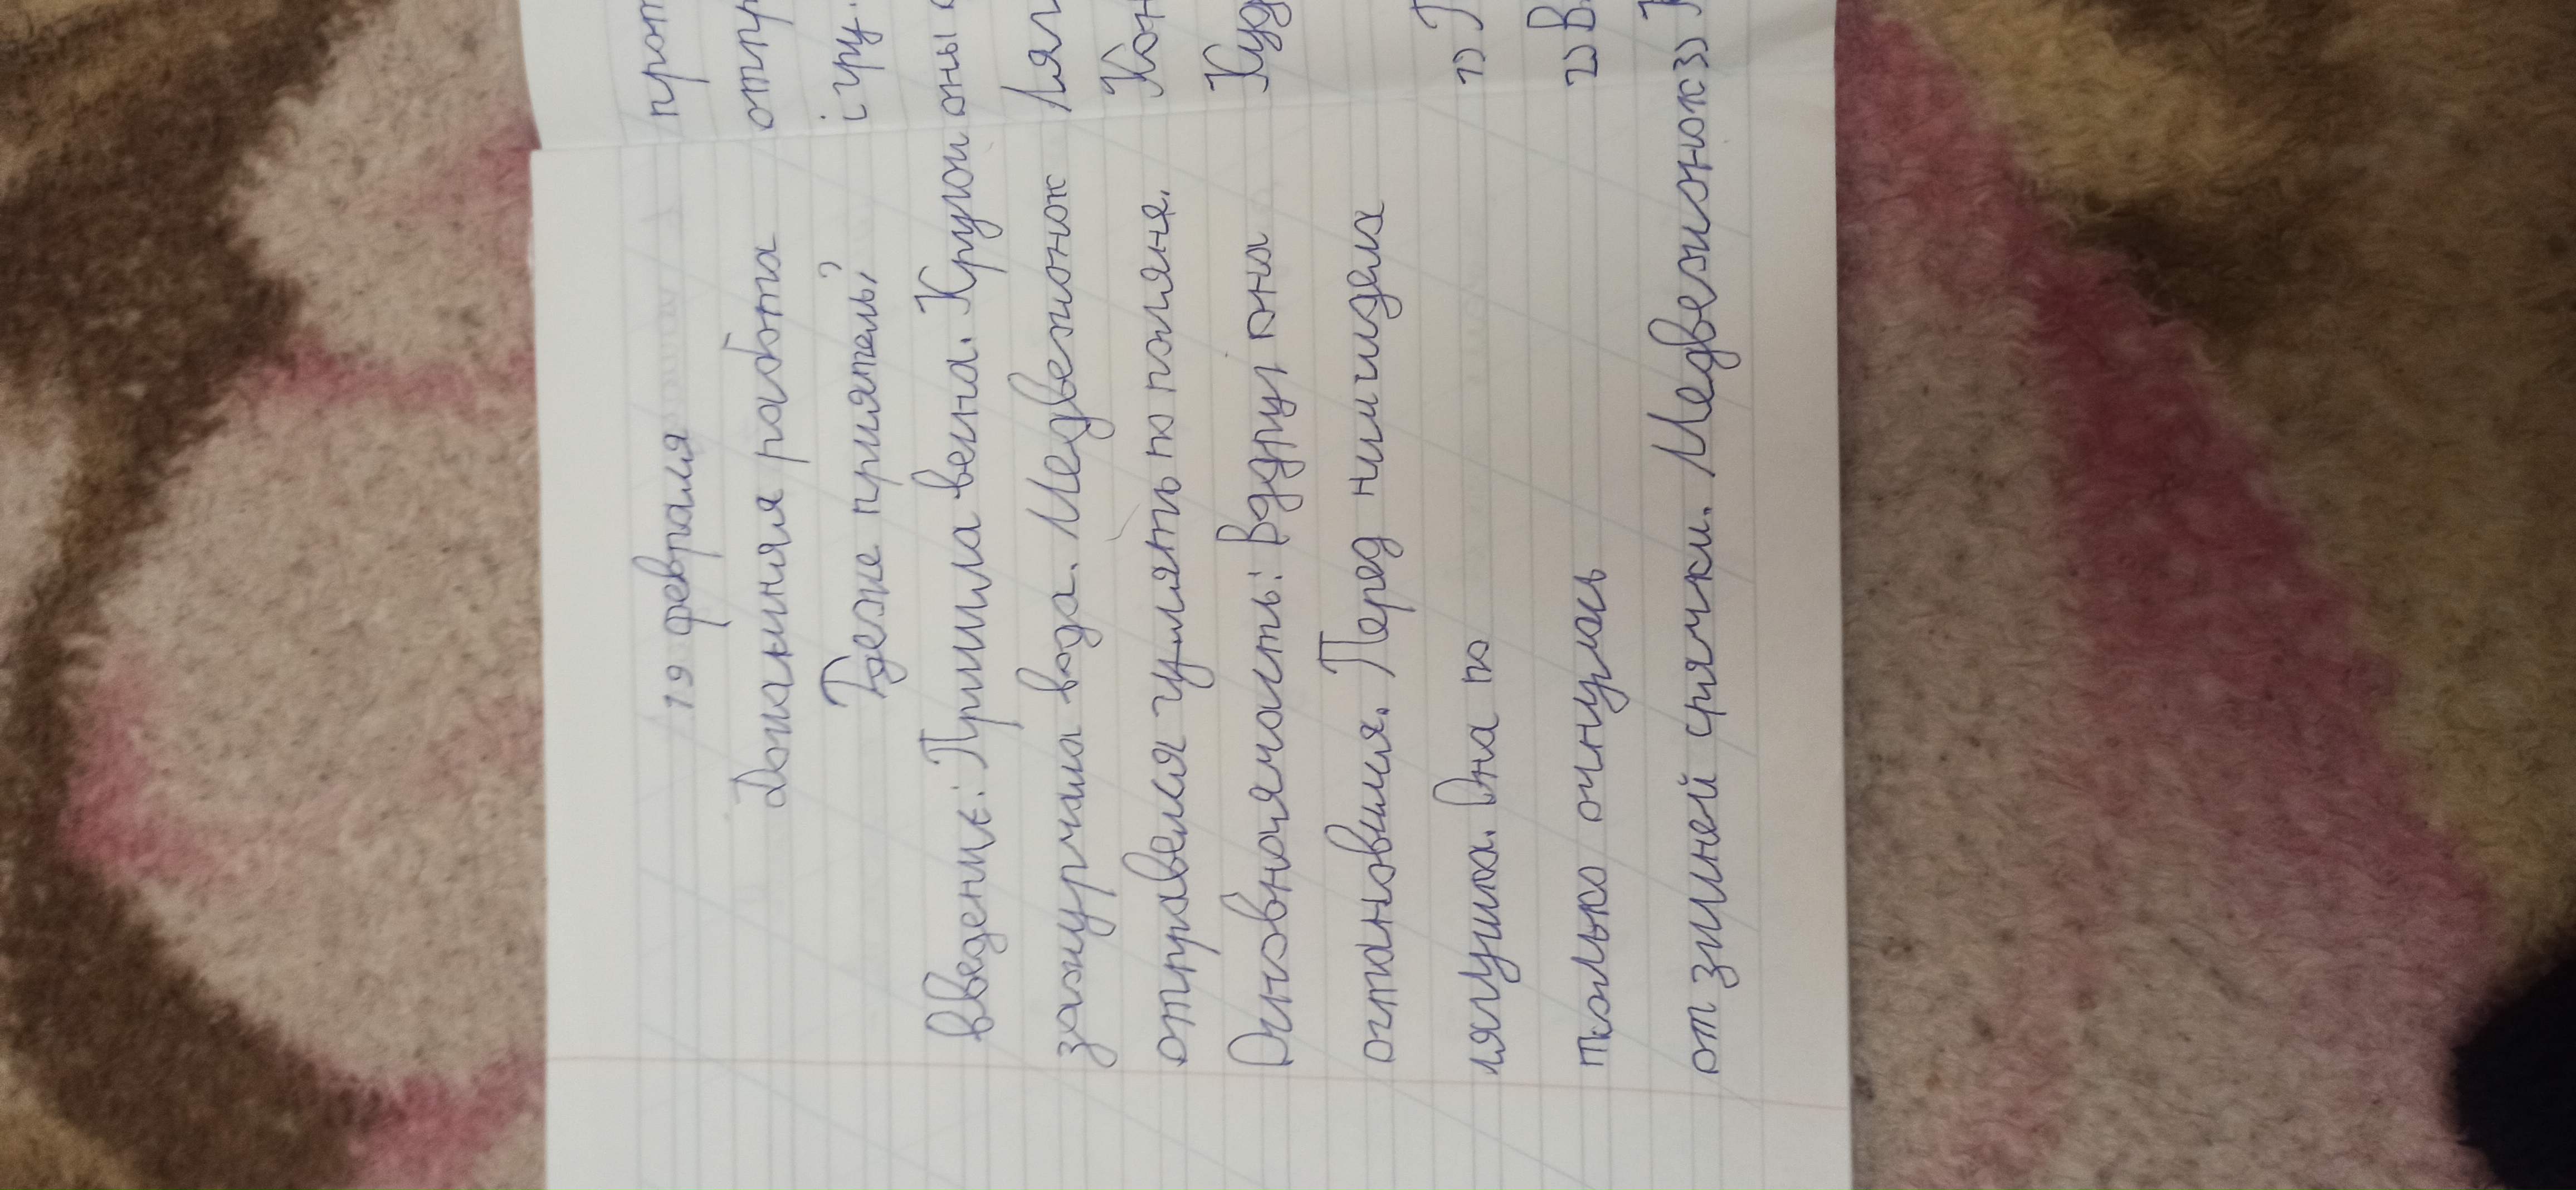 19 февраля
Домашняя работа
Где же приятель?
Введение: Пришла весна. Кругом
зажурчала вода. Медвежонок
отправелся гулять по поляне.
Основноячасть: Вдруг она
остановился. Перед ним идела
лягушка. Она по
только очнулась
от зимней спячки. Медвежонок
прот
отпр
игру.
оны
Ляг
Кон
Куд
1)
2) В
3)